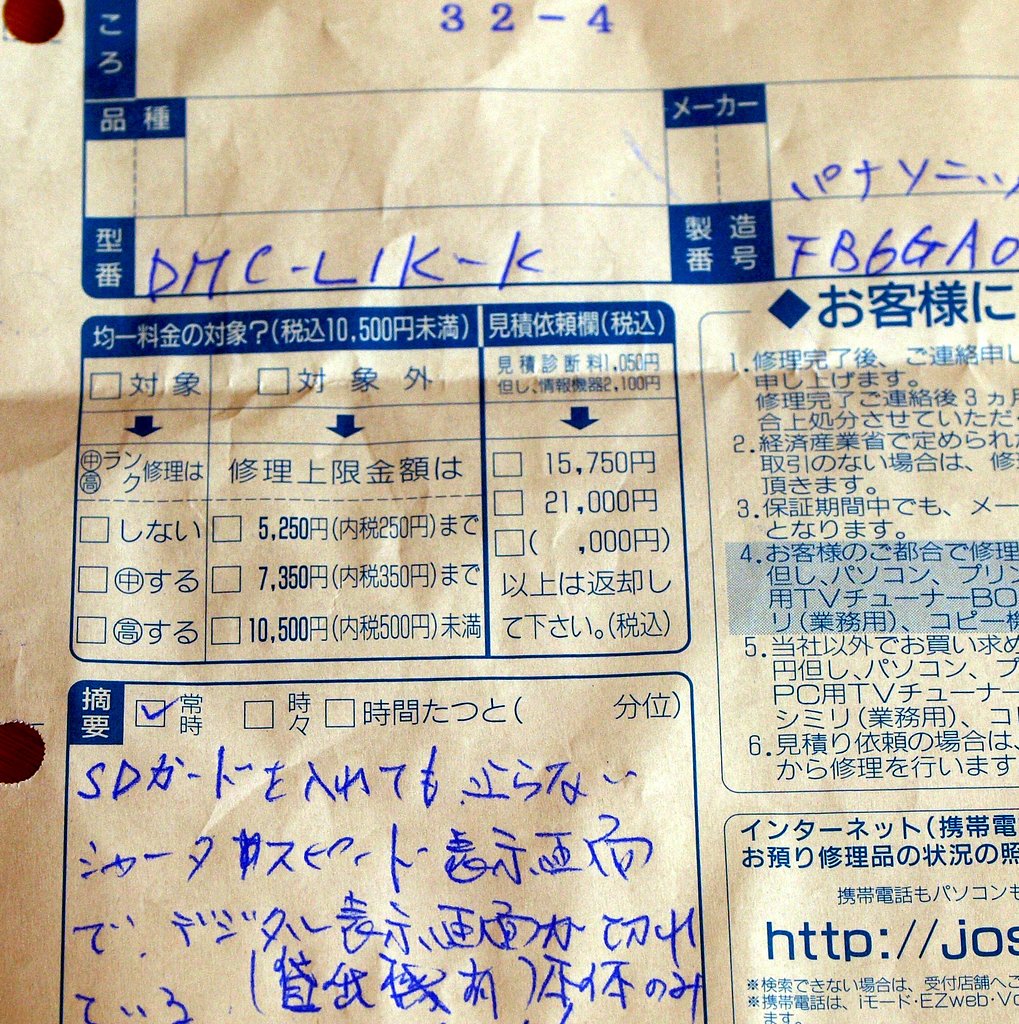 ころ
32-4
品種
メーカー
パナソニッ
型番
DMC-L1K-K
製造番号
FB6GA0
均一料金の対象?(税込10,500円未満)
見積依頼欄(税込)
□対象
□対象外
見積診断料1,050円
但し、情報機器2,100円
㊥㊤ランク修理は
修理上限金額は
□しない
□5,250円(内税250円)まで
□㊥する
□7,350円(内税350円)まで
□高する
□10,500円(内税500円)未満
□15,750円
□21,000円
□( ,000円)
以上は返却し
て下さい。(税込)
◆お客様に
1.修理完了後、ご連絡申し
申し上げます。
修理完了ご連絡後3ヵ月
合上処分させていただく
2.経済産業省で定められた
取引のない場合は、修
頂きます。
3.保証期間中でも、メー
となります。
4.お客様のご都合で修理
但し、パソコン、プリン
用TVチューナーBO
リ(業務用)、コピー機
5.当社以外でお買い求め
円但し、パソコン、プ
PC用TVチューナー
シミリ(業務用)、コピ
6.見積り依頼の場合は、
から修理を行います
摘要
☑常時
□時々
□時間たつと( 分位)
SDカードを入れても
シャータースピード表示画面
で、デジタル表示画面が切れ
ている。(貸出機有)本体のみ
インターネット(携帯電
お預り修理品の状況の照
携帯電話もパソコンも
http://jos
※検索できない場合は、受付店舗へご
※携帯電話は、iモード・EZweb・Vo
ます。